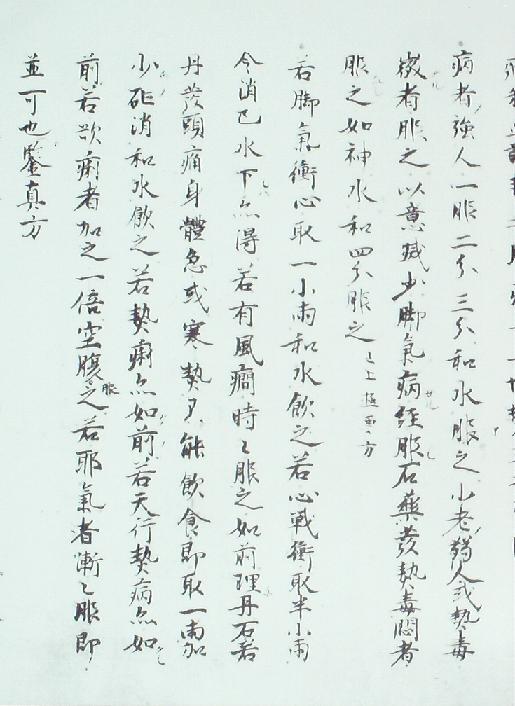 病者強人一服二分三分和水服之小老弱人或熱毒
微者服之以意減少脚氣病経服石藥發熱毒悶者
服之如神水和四分服之
若脚氣衝心取一小兩和水飲之若心戦衝取半小兩
令消已水下亦得若有風癇時〻服之如前理丹石若
丹發頭痛身體急或寒熱不能飲食即取一兩加
少硭消和水飲之若熱痢亦如前若天行熱病亦如
前若欲痢者加之一倍空腹服之若耶氣者漸〻服即
並可也鑒真方